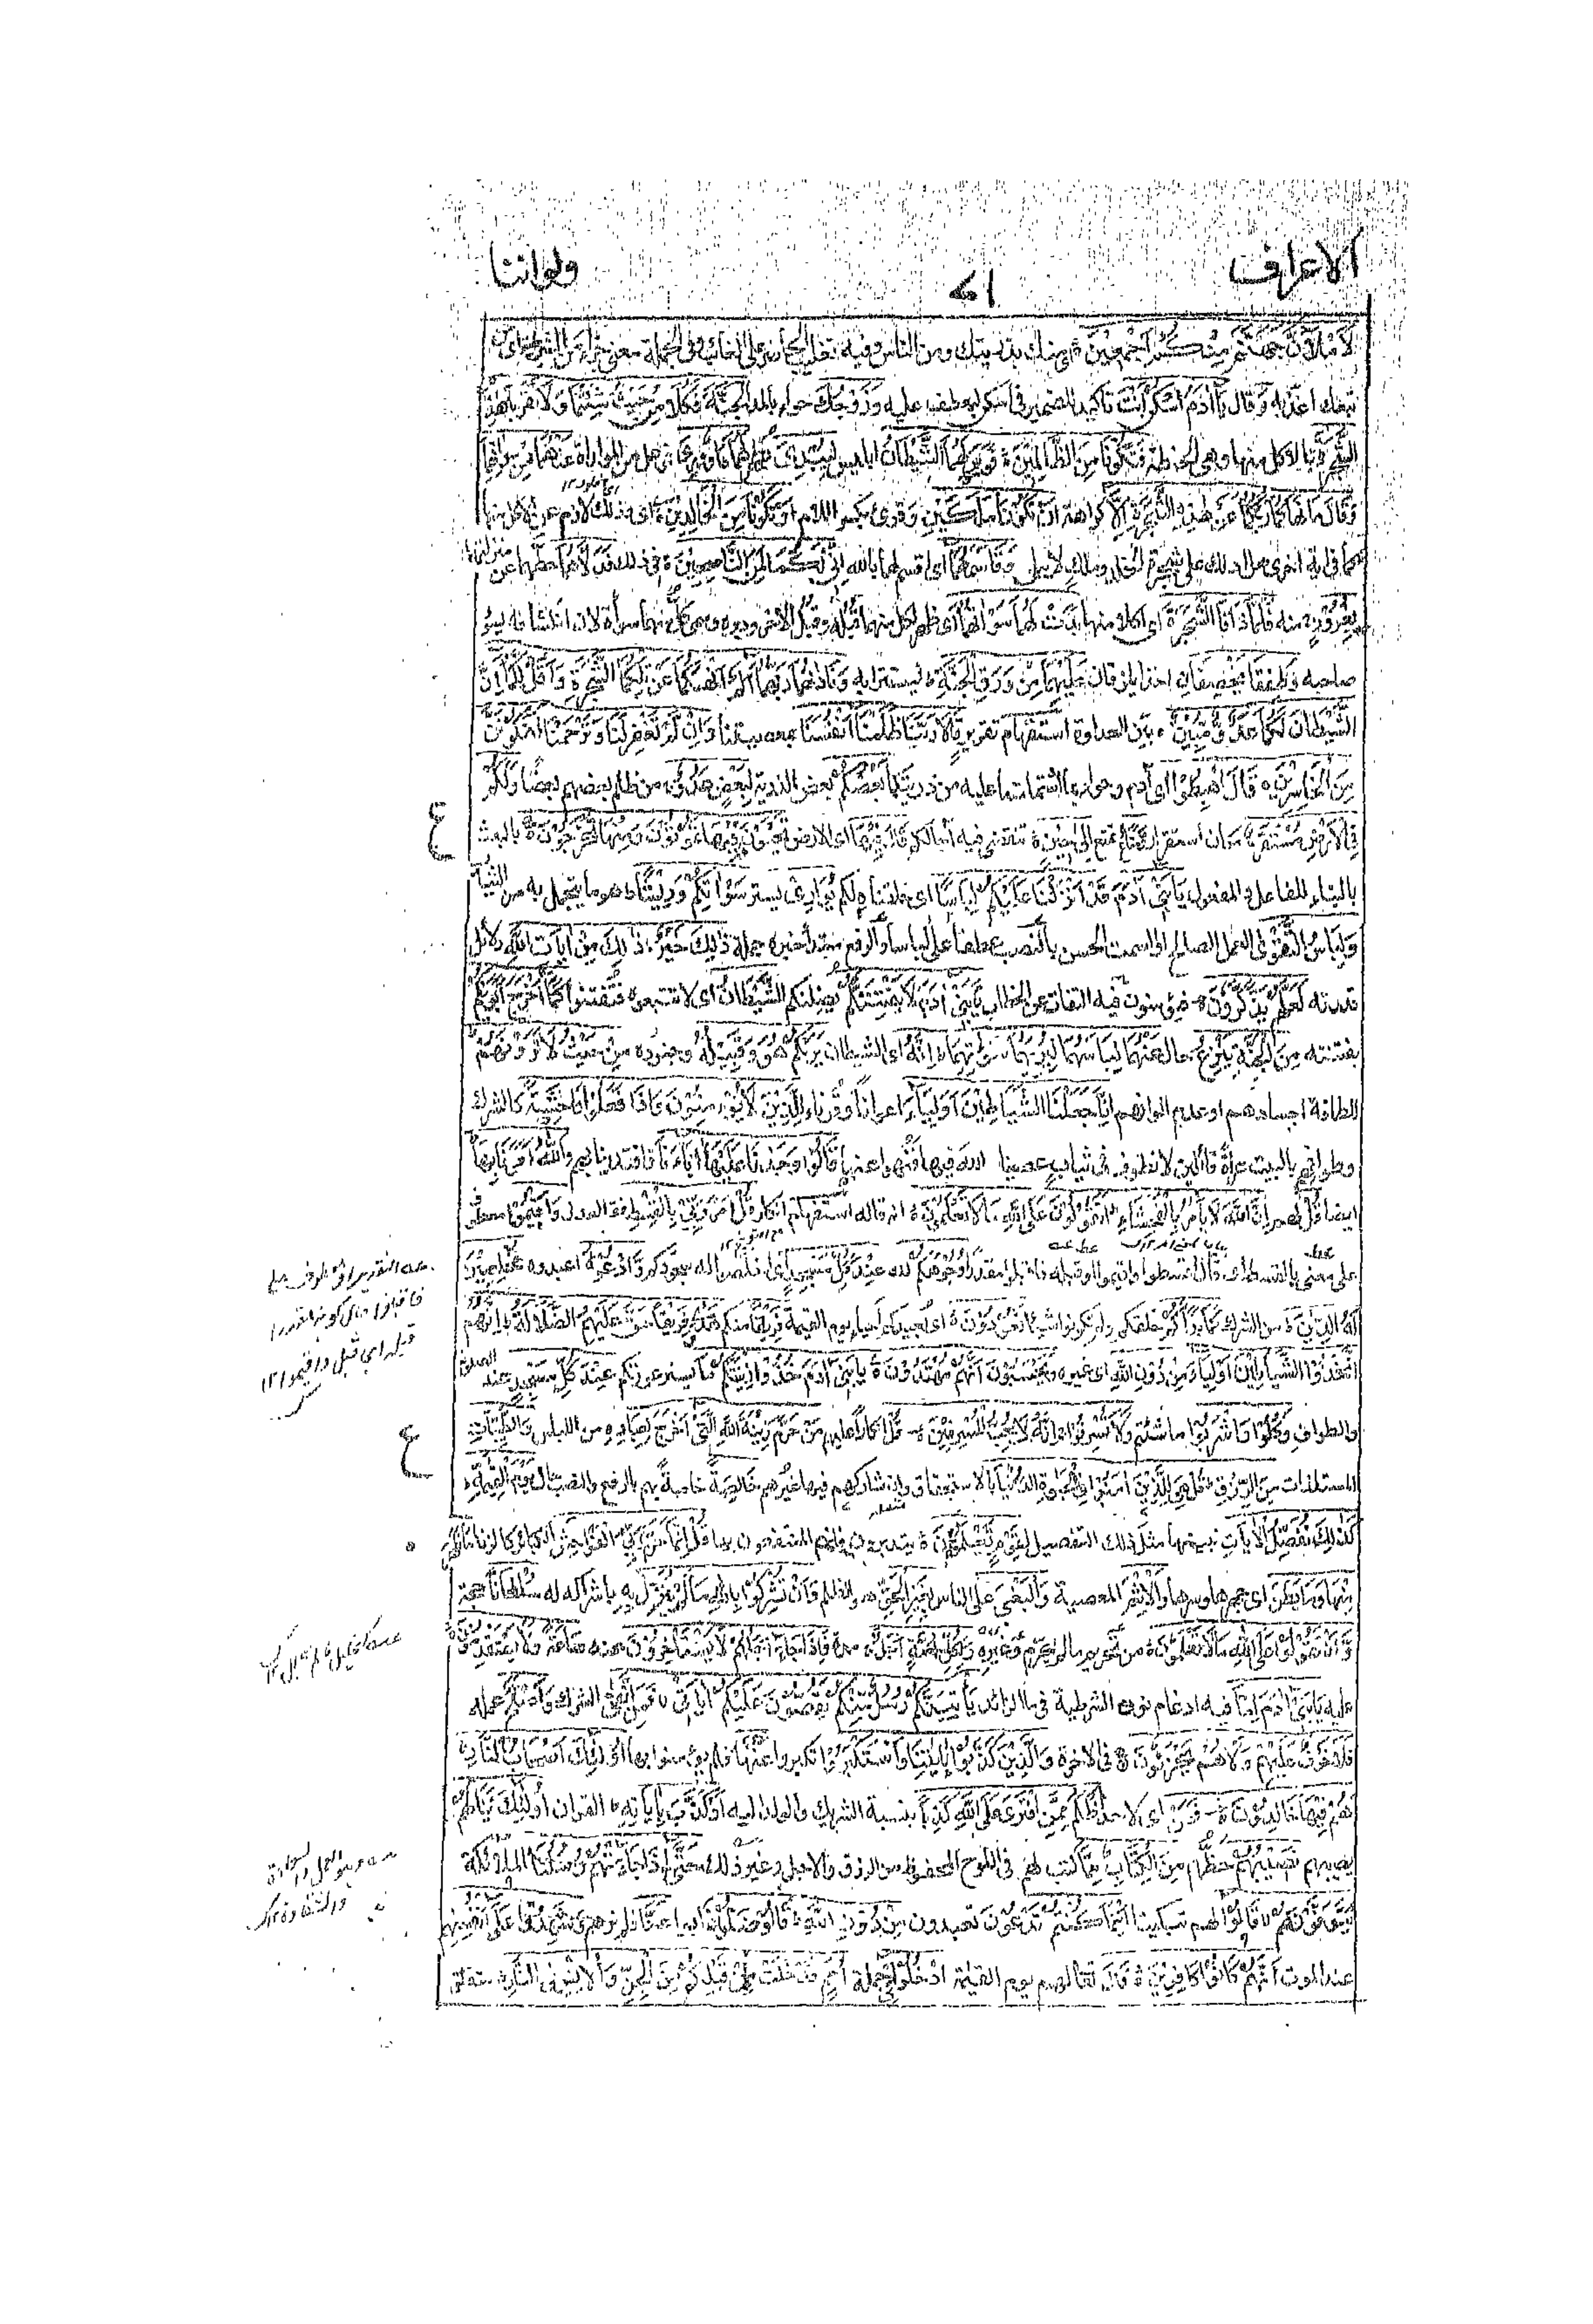 الاعراف
١٧
ولواننا
لَاَمْلَاَنَّ جَهَنَّمَ مِنْكُمْ اَجْمَعِيْنَ ای منك بذريتك ومن الناس وفيه تغليب الحاضر على الغائب وفى الجملة معنى جزاء من الشرطية ای من
تبعك اعذبه وَقال يٰاٰدَمُ اسْكُنْ اَنْتَ تاكيد للضمير فى اسكن ليعطف عليه وَزَوْجُكَ حواء بالمد الْجَنَّةَ فَكُلَا مِنْ حَيْثُ شِئْتُمَا وَلَا تَقْرَبَا هٰذِهِ
الشَّجَرَةَ بالاكل منها وهى الحنطة فَتَكُوْنَا مِنَ الظَّالِمِيْنَ فَوَسْوَسَ لَهُمَا الشَّيْطَانُ ابليس لِيُبْدِىَ يظهر لَهُمَا مَا وُوْرِىَ فوعل من المواراة عَنْهُمَا مِنْ سَوْاٰتِهِمَا
وَقَالَ مَا نَهَاكُمَا رَبُّكُمَا عَنْ هٰذِهِ الشَّجَرَةِ اِلَّا كراهة اَنْ تَكُوْنَا مَلَكَيْنِ وقرئ بكسر اللام اَوْ تَكُوْنَا مِنَ الْخَالِدِيْنَ ای وذلك لازم عن الاكل منها
كما فى اية اخرى هل ادلك على شجرة الخلد وملك لا يبلى وَقَاسَمَهُمَا ای اقسم لهما بالله اِنِّىْ لَكُمَا لَمِنَ النَّاصِحِيْنَ فى ذلك فَدَلّٰهُمَا حطهما عن منزلتهما
بِغُرُوْرٍ منه فَلَمَّا ذَاقَا الشَّجَرَةَ ای اكلا منها بَدَتْ لَهُمَا سَوْاٰتُهُمَا ای ظهر لكل منهما قبله وقبل الاخر ودبره وسمى كل منهما سوأة لان انكشافه يسوء
صاحبه وَطَفِقَا يَخْصِفَانِ اخذا يلزقان عَلَيْهِمَا مِنْ وَرَقِ الْجَنَّةِ ليستترا به وَنَادٰهُمَا رَبُّهُمَا اَلَمْ اَنْهَكُمَا عَنْ تِلْكُمَا الشَّجَرَةِ وَاَقُلْ لَّكُمَا اِنَّ
الشَّيْطَانَ لَكُمَا عَدُوٌّ مُّبِيْنٌ بين العداوة استفهام تقرير قَالَا رَبَّنَا ظَلَمْنَا اَنْفُسَنَا بمعصيتنا وَاِنْ لَّمْ تَغْفِرْ لَنَا وَتَرْحَمْنَا لَنَكُوْنَنَّ
مِنَ الْخَاسِرِيْنَ قَالَ اهْبِطُوْا ای آدم وحواء بما اشتملتما عليه من ذريتكما بَعْضُكُمْ بعض الذرية لِبَعْضٍ عَدُوٌّ من ظلم بعضهم بعضا وَلَكُمْ
فِى الْاَرْضِ مُسْتَقَرٌّ مكان استقرار وَّمَتَاعٌ تمتع اِلٰى حِيْنٍ تنقضى فيه آجالكم قَالَ فِيْهَا ای الارض تَحْيَوْنَ وَفِيْهَا تَمُوْتُوْنَ وَمِنْهَا تُخْرَجُوْنَ بالبعث
بالبناء للفاعل والمفعول يَا بَنِىْ اٰدَمَ قَدْ اَنْزَلْنَا عَلَيْكُمْ لِبَاسًا ای خلقناه لكم يُّوَارِىْ يستر سَوْاٰتِكُمْ وَرِيْشًا هو ما يتجمل به من الثياب
وَلِبَاسُ التَّقْوٰى العمل الصالح او السمت الحسن بالنصب عطفا على لباسا والرفع مبتدأ خبره جملة ذٰلِكَ خَيْرٌ ذٰلِكَ مِنْ اٰيَاتِ اللّٰهِ دلائل
قدرته لَعَلَّهُمْ يَذَّكَّرُوْنَ فيؤمنون فيه التفات عن الخطاب يَا بَنِىْ اٰدَمَ لَا يَفْتِنَنَّكُمْ يضلنكم الشَّيْطَانُ ای لا تتبعوه فتفتنوا كَمَا اَخْرَجَ اَبَوَيْكُمْ
بفتنته مِنَ الْجَنَّةِ يَنْزِعُ حال عَنْهُمَا لِبَاسَهُمَا لِيُرِيَهُمَا سَوْاٰتِهِمَا اِنَّهٗ ای الشيطان يَرٰىكُمْ هُوَ وَقَبِيْلُهٗ وجنوده مِنْ حَيْثُ لَا تَرَوْنَهُمْ
للطافة اجسادهم او عدم الوانهم اِنَّا جَعَلْنَا الشَّيَاطِيْنَ اَوْلِيَآءَ اعوانا وقرناء لِلَّذِيْنَ لَا يُؤْمِنُوْنَ وَاِذَا فَعَلُوْا فَاحِشَةً كالشرك
وطوافهم بالبيت عراة قائلين لا نطوف فى ثياب عصينا الله فيها فنهوا عنها قَالُوْا وَجَدْنَا عَلَيْهَا اٰبَاءَنَا فاقتدينا بهم وَاللّٰهُ اَمَرَنَا بِهَا
ايضا قُلْ لهم اِنَّ اللّٰهَ لَا يَاْمُرُ بِالْفَحْشَاءِ اَتَقُوْلُوْنَ عَلَى اللّٰهِ مَا لَا تَعْلَمُوْنَ انه قاله استفهام انكار قُلْ اَمَرَ رَبِّىْ بِالْقِسْطِ العدل وَاَقِيْمُوْا معطوف
على معنى بالقسط ای قال اقسطوا واقيموا او قبله فاقبلوا مقدرا وُجُوْهَكُمْ لله عِنْدَ كُلِّ مَسْجِدٍ ای اخلصوا له سجودكم وَادْعُوْهُ اعبدوه مُخْلِصِيْنَ
لَهُ الدِّيْنَ من الشرك كَمَا بَدَاَكُمْ خلقكم ولم تكونوا شيئا تَعُوْدُوْنَ ای يعيدكم احياء يوم القيمة فَرِيْقًا منكم هَدٰى وَفَرِيْقًا حَقَّ عَلَيْهِمُ الضَّلَالَةُ اِنَّهُمُ
اتَّخَذُوا الشَّيَاطِيْنَ اَوْلِيَاءَ مِنْ دُوْنِ اللّٰهِ ای غيره وَيَحْسَبُوْنَ اَنَّهُمْ مُّهْتَدُوْنَ يَا بَنِىْ اٰدَمَ خُذُوْا زِيْنَتَكُمْ ما يستر عورتكم عِنْدَ كُلِّ مَسْجِدٍ عند الصلوة
والطواف وَكُلُوْا وَاشْرَبُوْا ما شئتم وَلَا تُسْرِفُوْا اِنَّهٗ لَا يُحِبُّ الْمُسْرِفِيْنَ قُلْ انكارا عليهم مَنْ حَرَّمَ زِيْنَةَ اللّٰهِ الَّتِىْ اَخْرَجَ لِعِبَادِهٖ من اللباس وَالطَّيِّبَاتِ
المستلذات مِنَ الرِّزْقِ قُلْ هِىَ لِلَّذِيْنَ اٰمَنُوْا فِى الْحَيٰوةِ الدُّنْيَا بالاستحقاق وان شاركهم فيها غيرهم خَالِصَةً خاصة بهم بالرفع والنصب حال يَوْمَ الْقِيٰمَةِ
كَذٰلِكَ نُفَصِّلُ الْاٰيَاتِ نبينها مثل ذلك التفصيل لِقَوْمٍ يَّعْلَمُوْنَ يتدبرون فانهم المنتفعون بها قُلْ اِنَّمَا حَرَّمَ رَبِّىَ الْفَوَاحِشَ الكبائر كالزنا مَا ظَهَرَ
مِنْهَا وَمَا بَطَنَ ای جهرها وسرها وَالْاِثْمَ المعصية وَالْبَغْىَ على الناس بِغَيْرِ الْحَقِّ هو الظلم وَاَنْ تُشْرِكُوْا بِاللّٰهِ مَا لَمْ يُنَزِّلْ بِهٖ باشراكه سُلْطَانًا حجة
وَّاَنْ تَقُوْلُوْا عَلَى اللّٰهِ مَا لَا تَعْلَمُوْنَ من تحريم ما لم يحرم وغيره وَلِكُلِّ اُمَّةٍ اَجَلٌ مدة فَاِذَا جَاءَ اَجَلُهُمْ لَا يَسْتَاْخِرُوْنَ عنه سَاعَةً وَّلَا يَسْتَقْدِمُوْنَ
عليه يَا بَنِىْ اٰدَمَ اِمَّا فيه ادغام نون الشرطية فى ما الزائدة يَاْتِيَنَّكُمْ رُسُلٌ مِّنْكُمْ يَقُصُّوْنَ عَلَيْكُمْ اٰيَاتِىْ فَمَنِ اتَّقٰى الشرك وَاَصْلَحَ عمله
فَلَا خَوْفٌ عَلَيْهِمْ وَلَا هُمْ يَحْزَنُوْنَ فى الاخرة وَالَّذِيْنَ كَذَّبُوْا بِاٰيٰتِنَا وَاسْتَكْبَرُوْا تكبروا عَنْهَا فلم يؤمنوا بها اُولٰئِكَ اَصْحَابُ النَّارِ
هُمْ فِيْهَا خَالِدُوْنَ فَمَنْ ای لا احد اَظْلَمُ مِمَّنِ افْتَرٰى عَلَى اللّٰهِ كَذِبًا بنسبة الشريك والولد اليه اَوْ كَذَّبَ بِاٰيَاتِهٖ القران اُولٰئِكَ يَنَالُهُمْ
يصيبهم نَصِيْبُهُمْ حظهم مِنَ الْكِتَابِ مما كتب لهم فى اللوح المحفوظ من الرزق والاجل وغير ذلك حَتّٰى اِذَا جَاءَتْهُمْ رُسُلُنَا الملائكة
يَتَوَفَّوْنَهُمْ قَالُوْا لهم تبكيتا اَيْنَمَا كُنْتُمْ تَدْعُوْنَ تعبدون مِنْ دُوْنِ اللّٰهِ قَالُوْا ضَلُّوْا غابوا عَنَّا فلم نرهم وَشَهِدُوْا عَلٰى اَنْفُسِهِمْ
عند الموت اَنَّهُمْ كَانُوْا كَافِرِيْنَ قَالَ تعالى لهم يوم القيمة ادْخُلُوْا فِىْ جملة اُمَمٍ قَدْ خَلَتْ مِنْ قَبْلِكُمْ مِّنَ الْجِنِّ وَالْاِنْسِ فِى النَّارِ متعلق
ع
ع